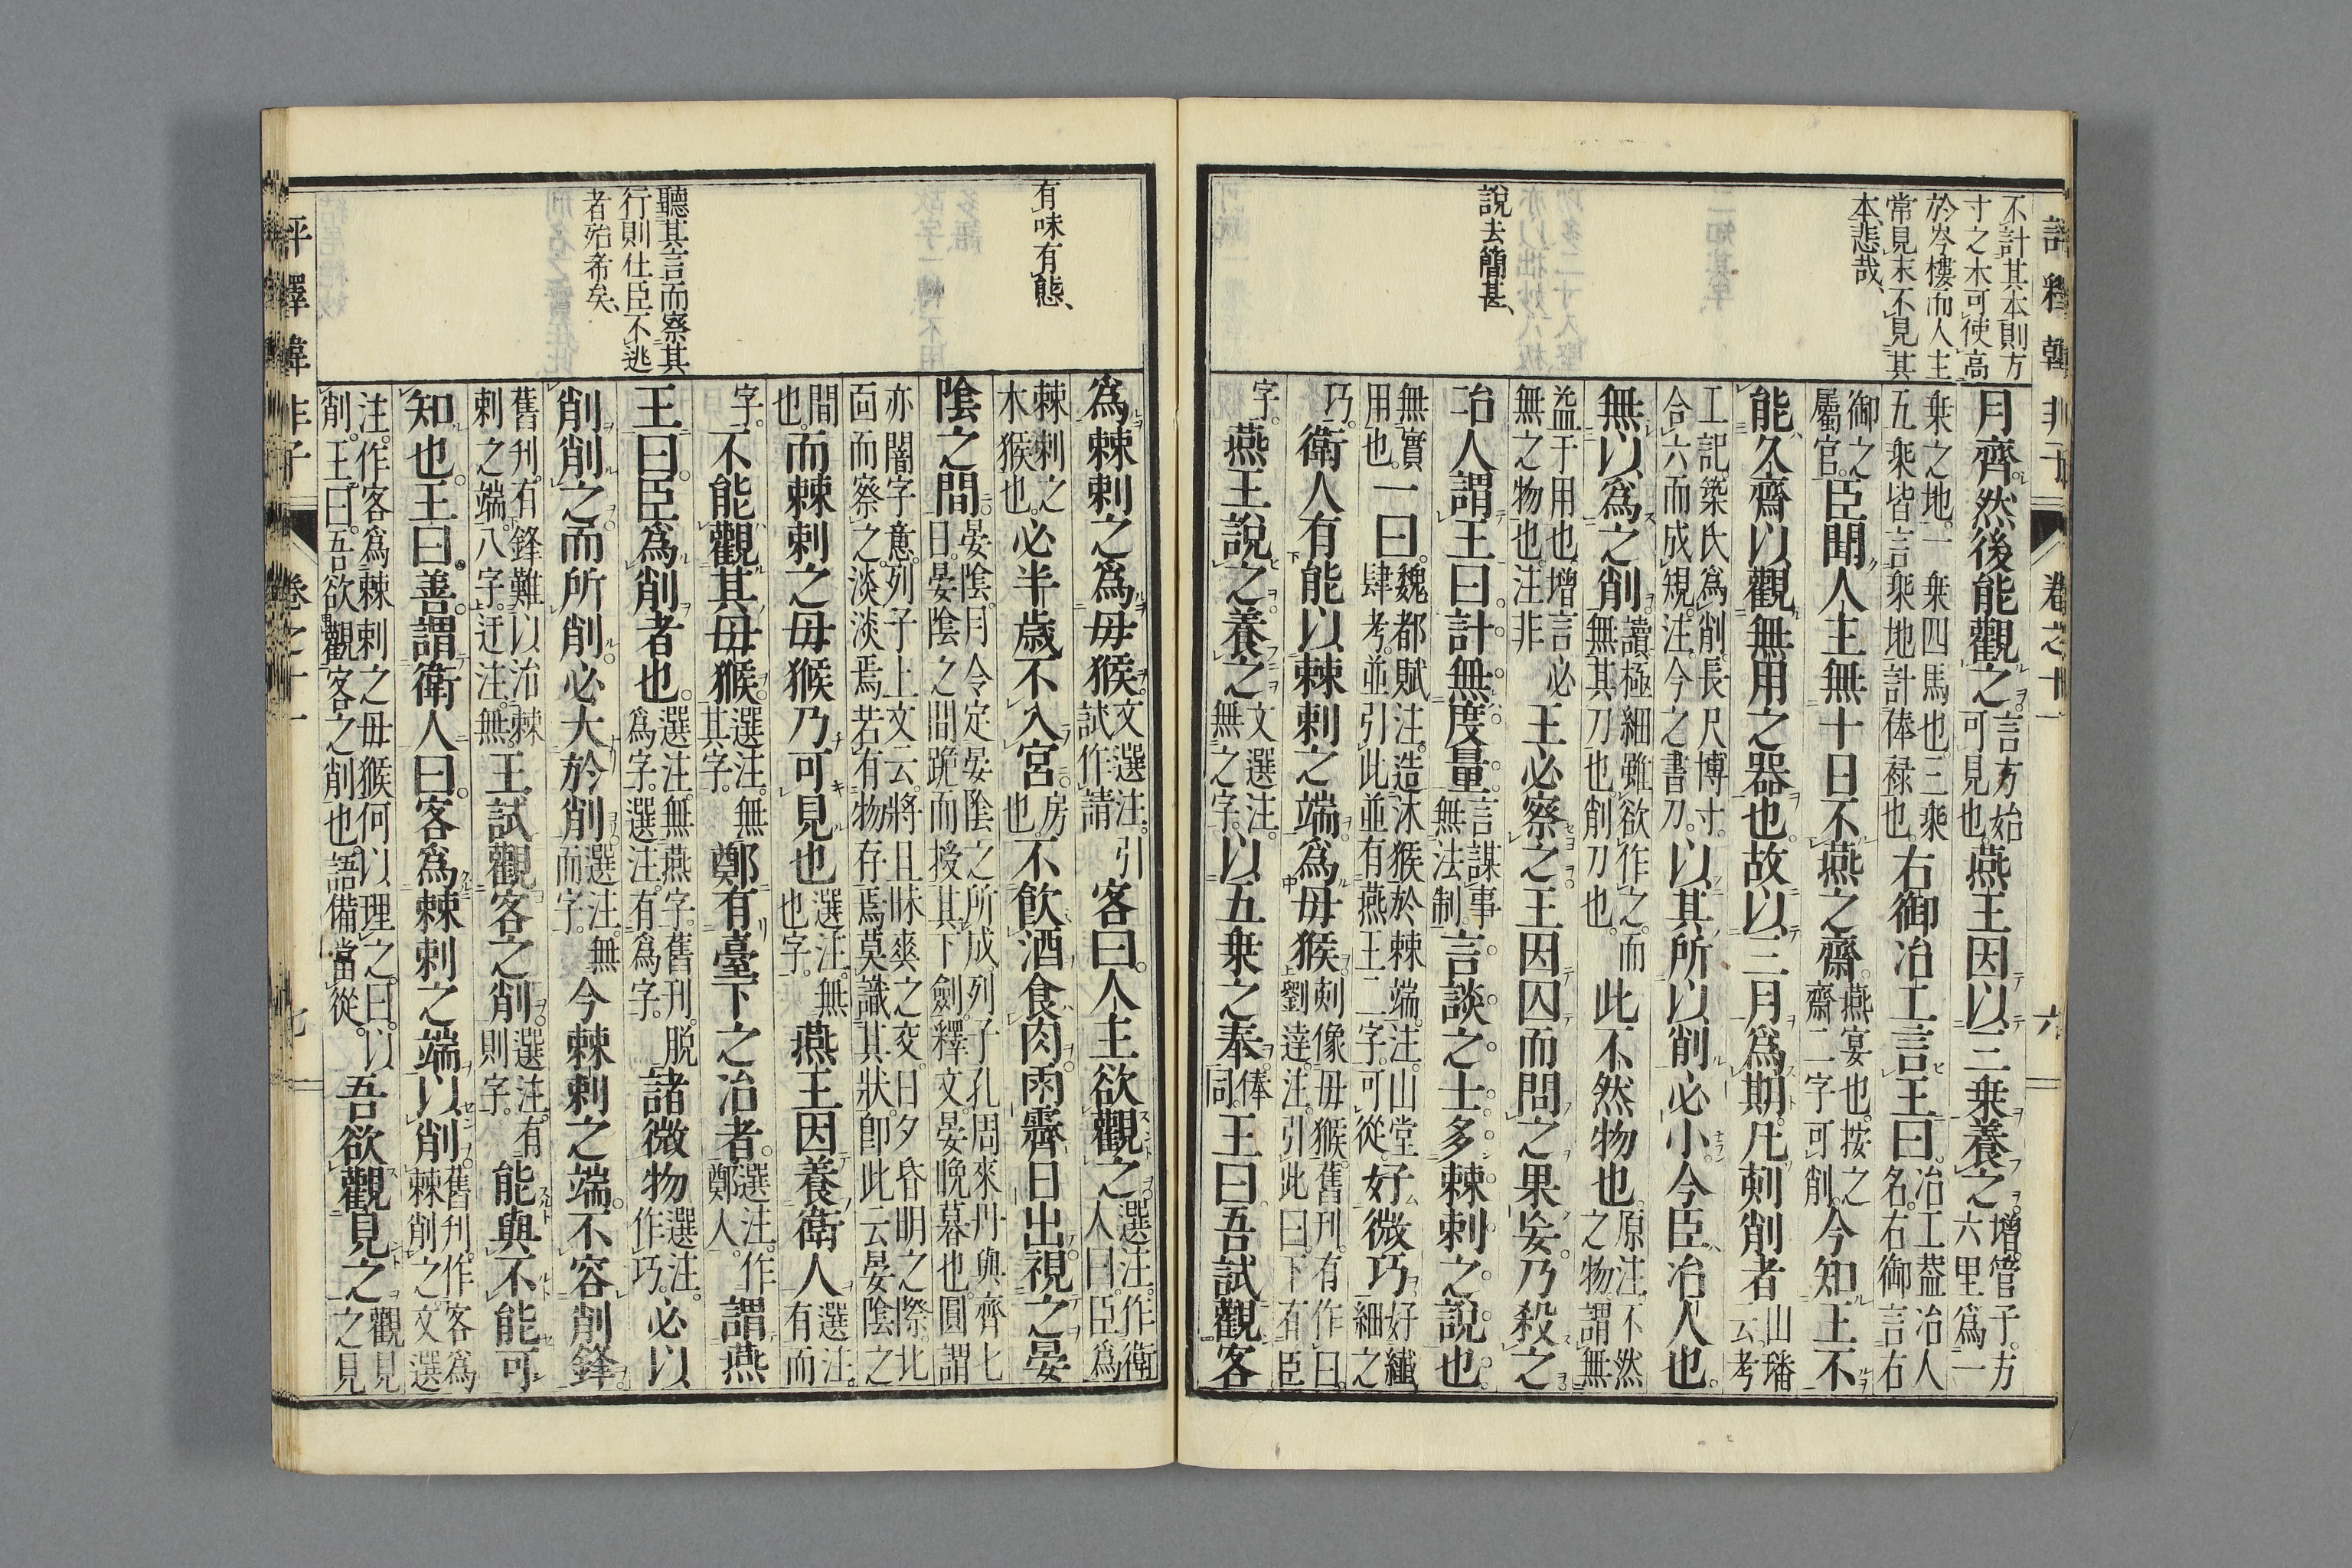 評釋韓非子 卷之十一 六
不計其本則方
寸之木可使高
於岑樓而人主
常見末不見其
本悲哉
說去簡甚
月齊然後能觀之言方始可見也燕王因以三乗養之增管子方六里爲一
乗之地一乗四馬也三乗五乗皆言乗地計俸禄也右御冶工言王曰冶工葢冶人名右御言右
御之屬官臣聞人主無十日不燕之齋燕宴也按之齋二字可削今知王不
能久齋以觀無用之器也故以三月爲期凡刻削者山璠云考
工記築氏爲削長尺博寸合六而成規注今之書刀以其所以削必小今臣冶人也
無以爲之削讀極細雖欲作之而無其刀也削刀也此不然物也原注不然之物謂無
益于用也增言必無之物也注非王必察之王因囚而問之果妄乃殺之
冶人謂王曰計無度量言謀事無法制言談之士多棘刺之說也
無實用也一曰魏都賦注造沐猴於棘端注山堂肆考並引此並有燕王二字可從好微巧好纎細之
巧衛人有能以棘刺之端爲母猴刻像母猴舊刊有作曰劉逵注引此曰下有臣
字燕王說之養之文選注無之字以五乗之奉俸同王曰吾試觀客
有味有態
聽其言而察其
行則仕臣不逃
者殆希矣
爲棘刺之爲母猴文選注引試作請客曰人主欲觀之選注作衛人曰臣爲
棘刺之木猴也必半歳不入宮房也不飮酒食肉雨霽日出視之晏
陰之間晏陰月令定晏陰之所成列子孔周來丹與齊七日晏陰之間跪而授其下劒釋文晏晚暮也圓謂
亦闇字意列子上文云將旦昧爽之交日夕昏明之際北面而察之淡淡焉若有物存焉莫識其狀卽此云晏陰之
間也而棘刺之母猴乃可見也選注無也字燕王因養衛人選注有而
字不能觀其母猴選注無其字鄭有臺下之冶者選注作鄭人謂燕
王曰臣爲削者也選注無燕字舊刊脫爲字選注有爲字諸微物選注作巧必以
削削之而所削必大於削選注無而字今棘刺之端不容削鋒
舊刊有鋒難以治棘刺之端八字迂注無王試觀客之削選注有則字能與不能可
知也王曰善謂衛人曰客爲棘刺之端以削舊刊作客爲棘削之文選
注作客爲棘刺之母猴何以理之曰以削王曰吾欲觀客之削也語備當從吾欲觀見之觀見之見
評釋韓非子 卷之十一 七